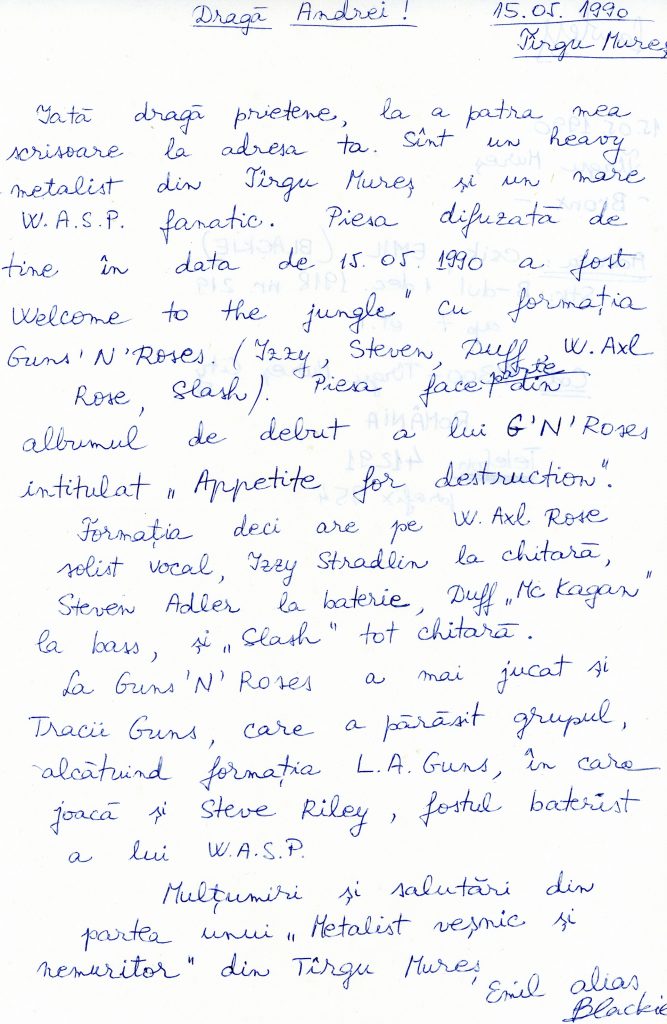 Dragă Andrei! 15.05.1990
Tîrgu Mureş
Iată dragă prietene, la a patra mea
scrisoare la adresa ta. Sînt un heavy
metalist din Tîrgu Mureş şi un mare
W.A.S.P. fanatic. Piesa difuzată de
tine în data de 15.05.1990 a fost
Welcome to the jungle" cu formaţia
Guns'N'Roses. (Izzy, Steven, Duff, W. Axl
Rose, Slash). Piesa face parte din
albumul de debut a lui G'N'Roses
intitulat „Appetite for destruction".
Formaţia deci are pe W. Axl Rose
solist vocal, Izzy Stradlin la chitară,
Steven Adler la baterie, Duff „Mc Kagan"
la bass, şi „Slash" tot chitară.
La Guns'N'Roses a mai jucat şi
Tracii Guns, care a părăsit grupul,
alcătuind formaţia L.A. Guns, în care
joacă şi Steve Riley, fostul baterist
a lui W.A.S.P.
Mulţumiri şi salutări din
partea unui „Metalist veşnic şi
nemuritor" din Tîrgu Mureş
Emil alias
Blackie